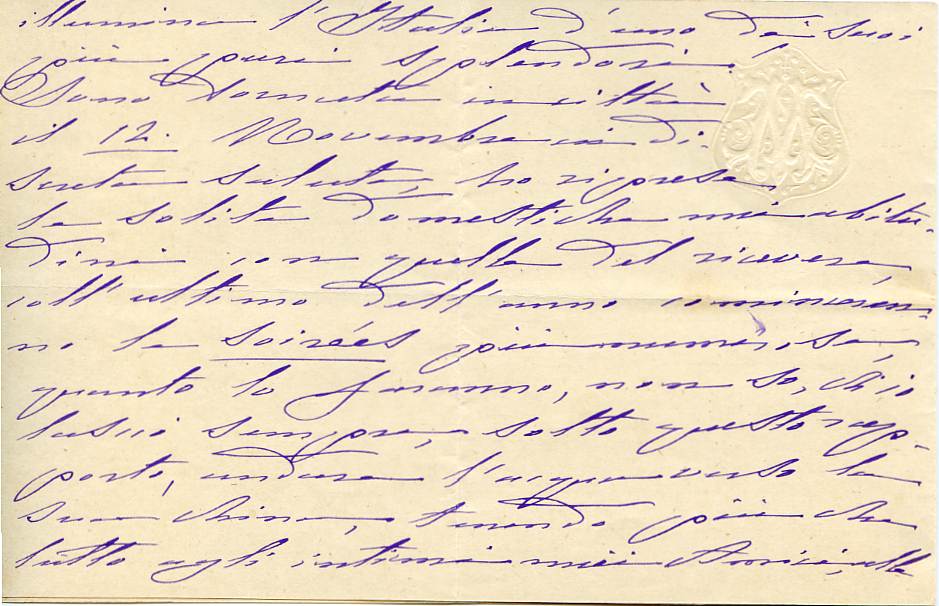 illumina l'Italia d'uno dei suoi
più puri splendori!
Sono tornata in città
il 12. Novembre in di-
screta salute, ho ripreso
le solite domestiche mie abitu-
dini con quella del ricevere,
coll'ultimo dell'anno comincieran-
no le soirées più numerose,
quanto lo saranno, non so, ch'io
lascio sempre, sotto questo rap-
porto, andare l'acqua verso la
sua china, tenendo più che
tutto agli intimi miei Amici, alle